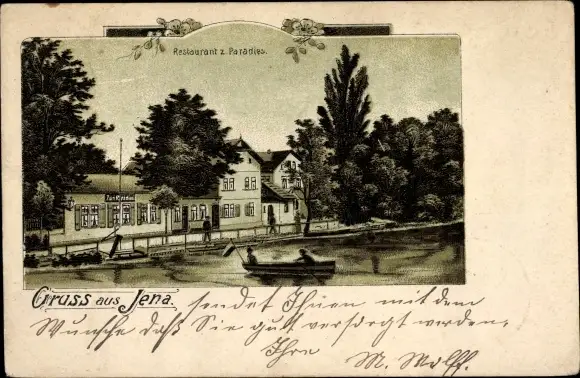 Restaurant z. Paradies.
Zum Paradies
Gruss aus Jena. sendet Ihnen mit dem
Wunsche daß Sie gut versorgt werden,
Ihre M. Wolff.